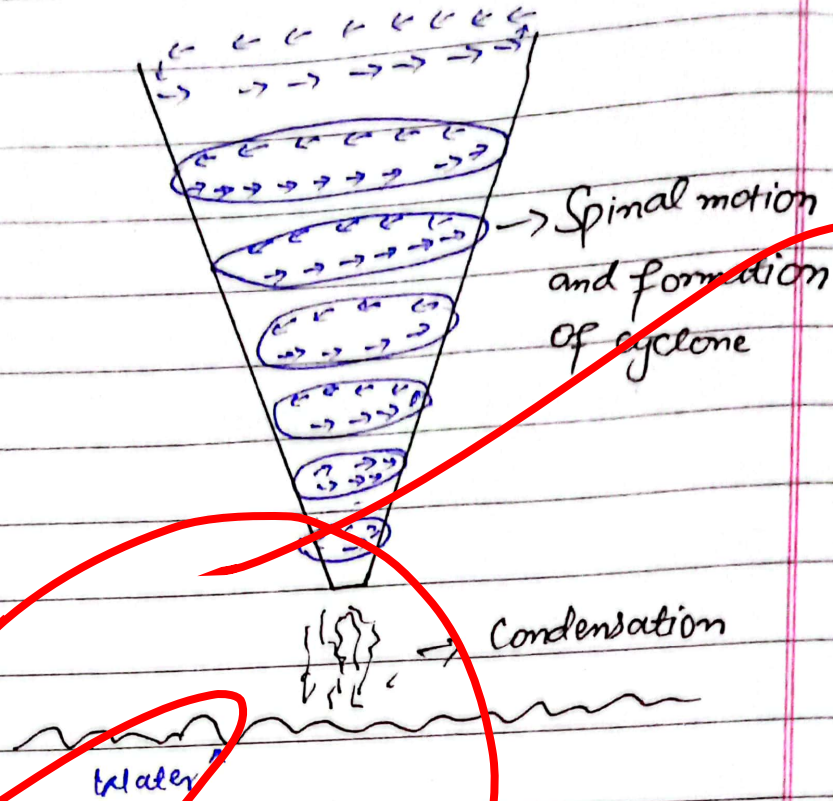 Spinal motion
and formation
of cyclone
Condensation
Water